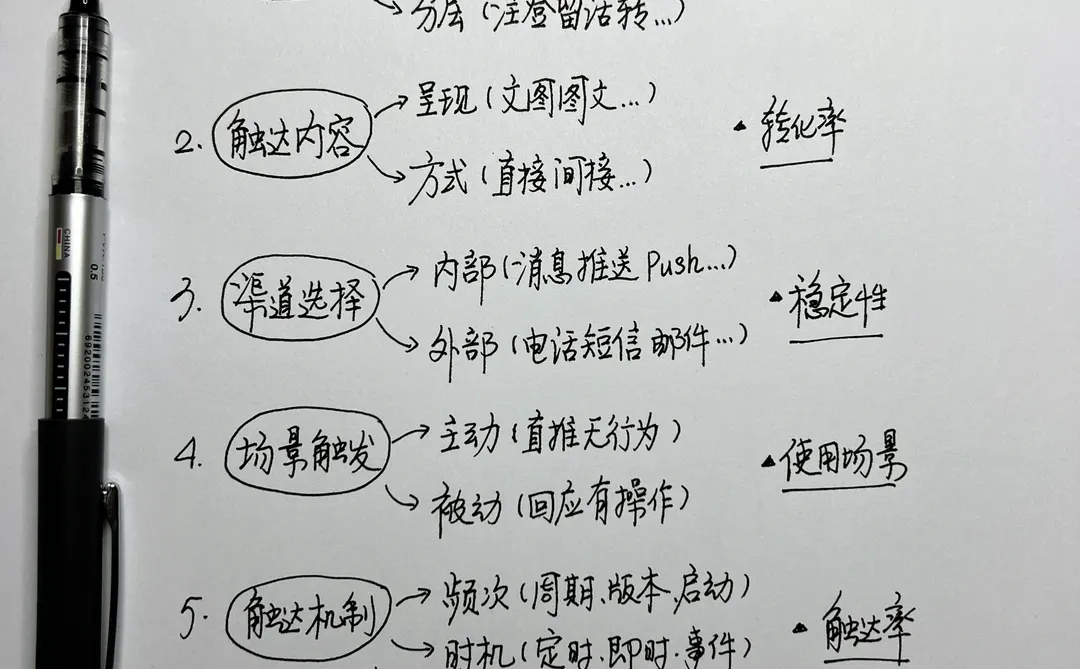 分层（注登留活转...）
呈现（文图图文...）
2. 触达内容
▲ 转化率
方式（直接间接...）
内部（消息推送 Push...）
3. 渠道选择
▲ 稳定性
外部（电话短信邮件...）
主动（直推无行为）
4. 场景触发
▲ 使用场景
被动（回应有操作）
频次（周期、版本、启动）
5. 触达机制
▲ 触达率
时机（定时、即时、事件）
CHINA
0.5